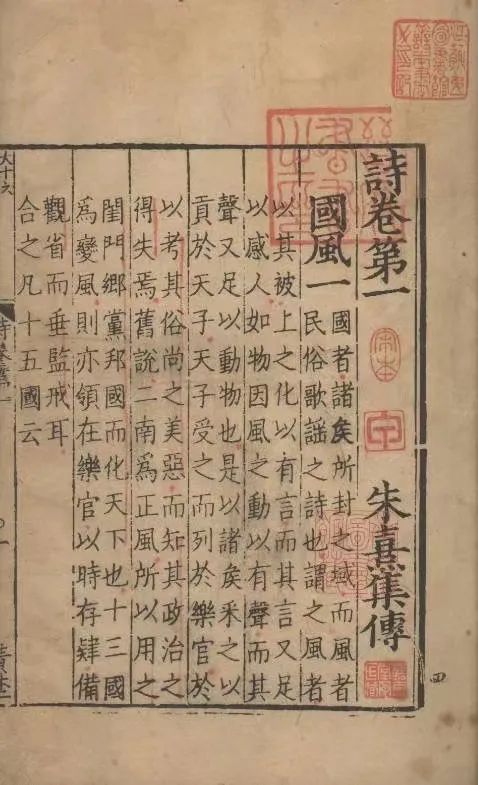 詩卷第一
宋本
甲
朱熹集傳
國風一
國者諸矦所封之域而風者
民俗歌謡之詩也謂之風者
以其被上之化以有言而其言又足
以感人如物因風之動以有聲而其
聲又足以動物也是以諸矦采之以
貢於天子天子受之而列於樂官於
以考其俗尚之美惡而知其政治之
得失焉舊說二南爲正風所以用之
閨門鄉黨邦國而化天下也十三國
爲變風則亦領在樂官以時存肄備
觀省而垂監戒耳
合之凡十五國云